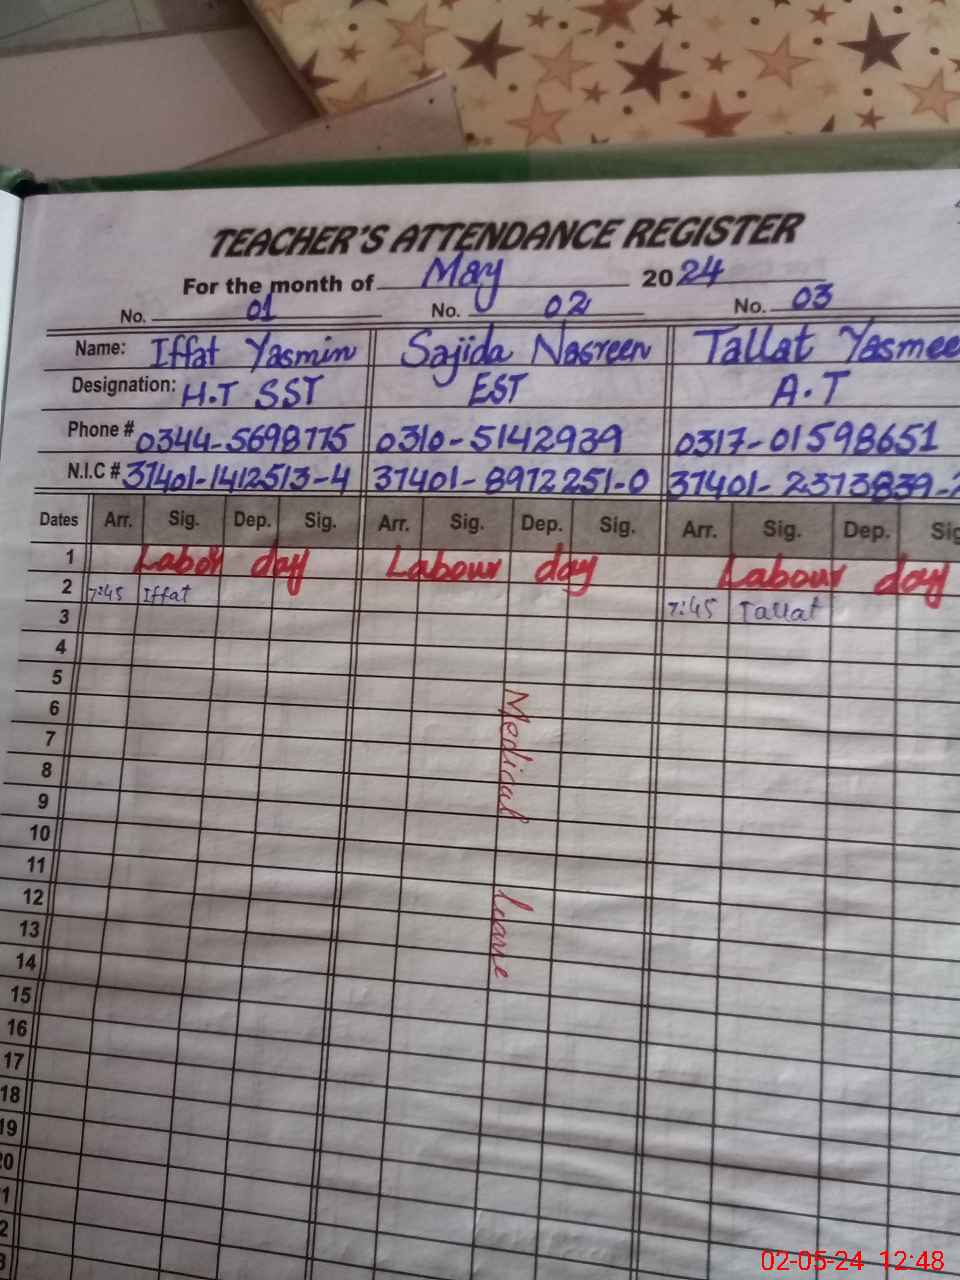 TEACHER'S ATTENDANCE REGISTER
For the month of May 2024
No. 01 No. 02 No. 03
Name: Iffat Yasmin Sajida Nasreen Tallat Yasmee
Designation: H.T SST EST A.T
Phone # 0344-5698775 0310-5142939 0317-01598651
N.I.C # 37401-1412513-4 37401-8972251-0 37401-2373839-
Dates Arr. Sig. Dep. Sig. Arr. Sig. Dep. Sig. Arr. Sig. Dep. Sig
1 Labor day Labour day Labour day
2 7:45 Iffat 7:45 Tallat
3
4
5
6
7
8
9
10
11
12
13
14
15
16
17
18
19
20
1
2
3
Medical leave
02-05-24 12:48